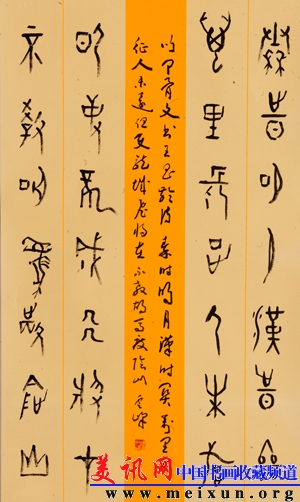 秦時明月漢時關
萬里長征人未還
以甲骨文书王昌龄诗 秦时明月漢时關万里
征人未還但使龙城飛将在不教胡马度阴山
但使龍城飛將在
不教胡馬度陰山
美讯网 中国书画收藏频道
www.meixun.org